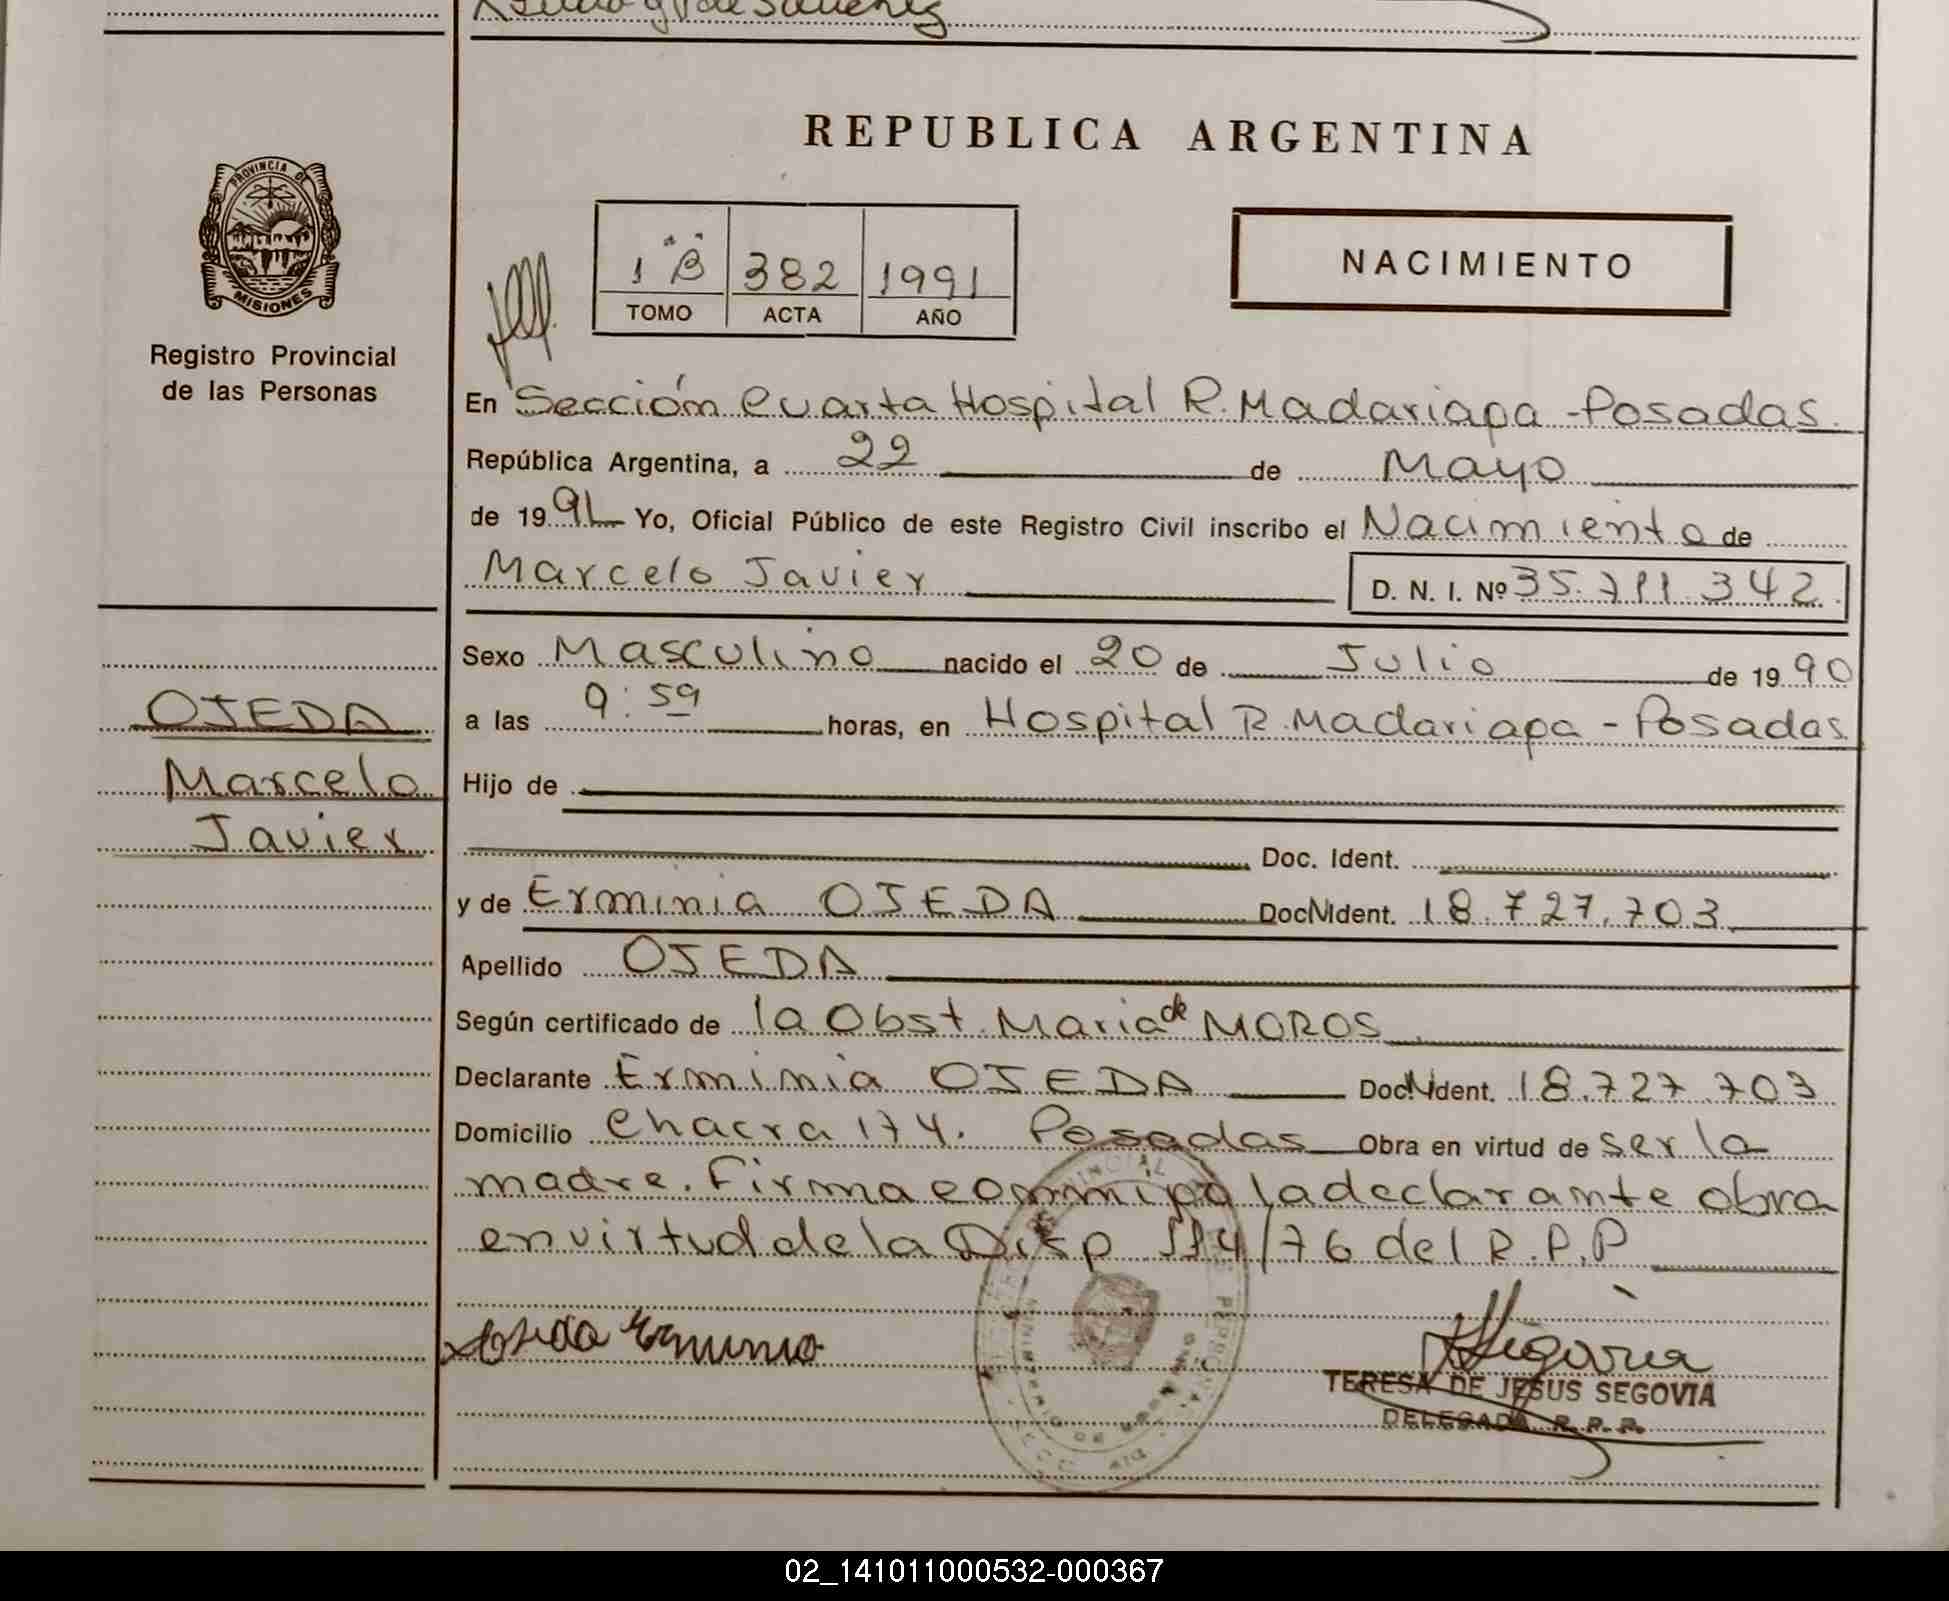 REPUBLICA ARGENTINA
PROVINCIA DE
MISIONES
Registro Provincial
de las Personas
1 "B" 382 1991
TOMO ACTA AÑO
NACIMIENTO
En Sección Cuarta Hospital R. Madariaga - Posadas.
República Argentina, a 22 de Mayo
de 1991 Yo, Oficial Público de este Registro Civil inscribo el Nacimiento de
Marcelo Javier D. N. I. Nº 35.711.342.
Sexo Masculino nacido el 20 de Julio de 1990
a las 9:59 horas, en Hospital R. Madariaga - Posadas.
OJEDA
Marcelo
Javier
Hijo de
Doc. Ident.
y de Erminia OJEDA Doc. Ident. 18.727.703
Apellido OJEDA
Según certificado de la Obst. Maria de MOROS
Declarante Erminia OJEDA Doc. Ident. 18.727.703
Domicilio Chacra 174. Posadas Obra en virtud de ser la
madre. Firma conmigo la declarante obra
en virtud de la Disp 114/76 del R.P.P
Ojeda Erminia
Segovia
TERESA DE JESUS SEGOVIA
DELEGADA R.P.P.
02_141011000532-000367